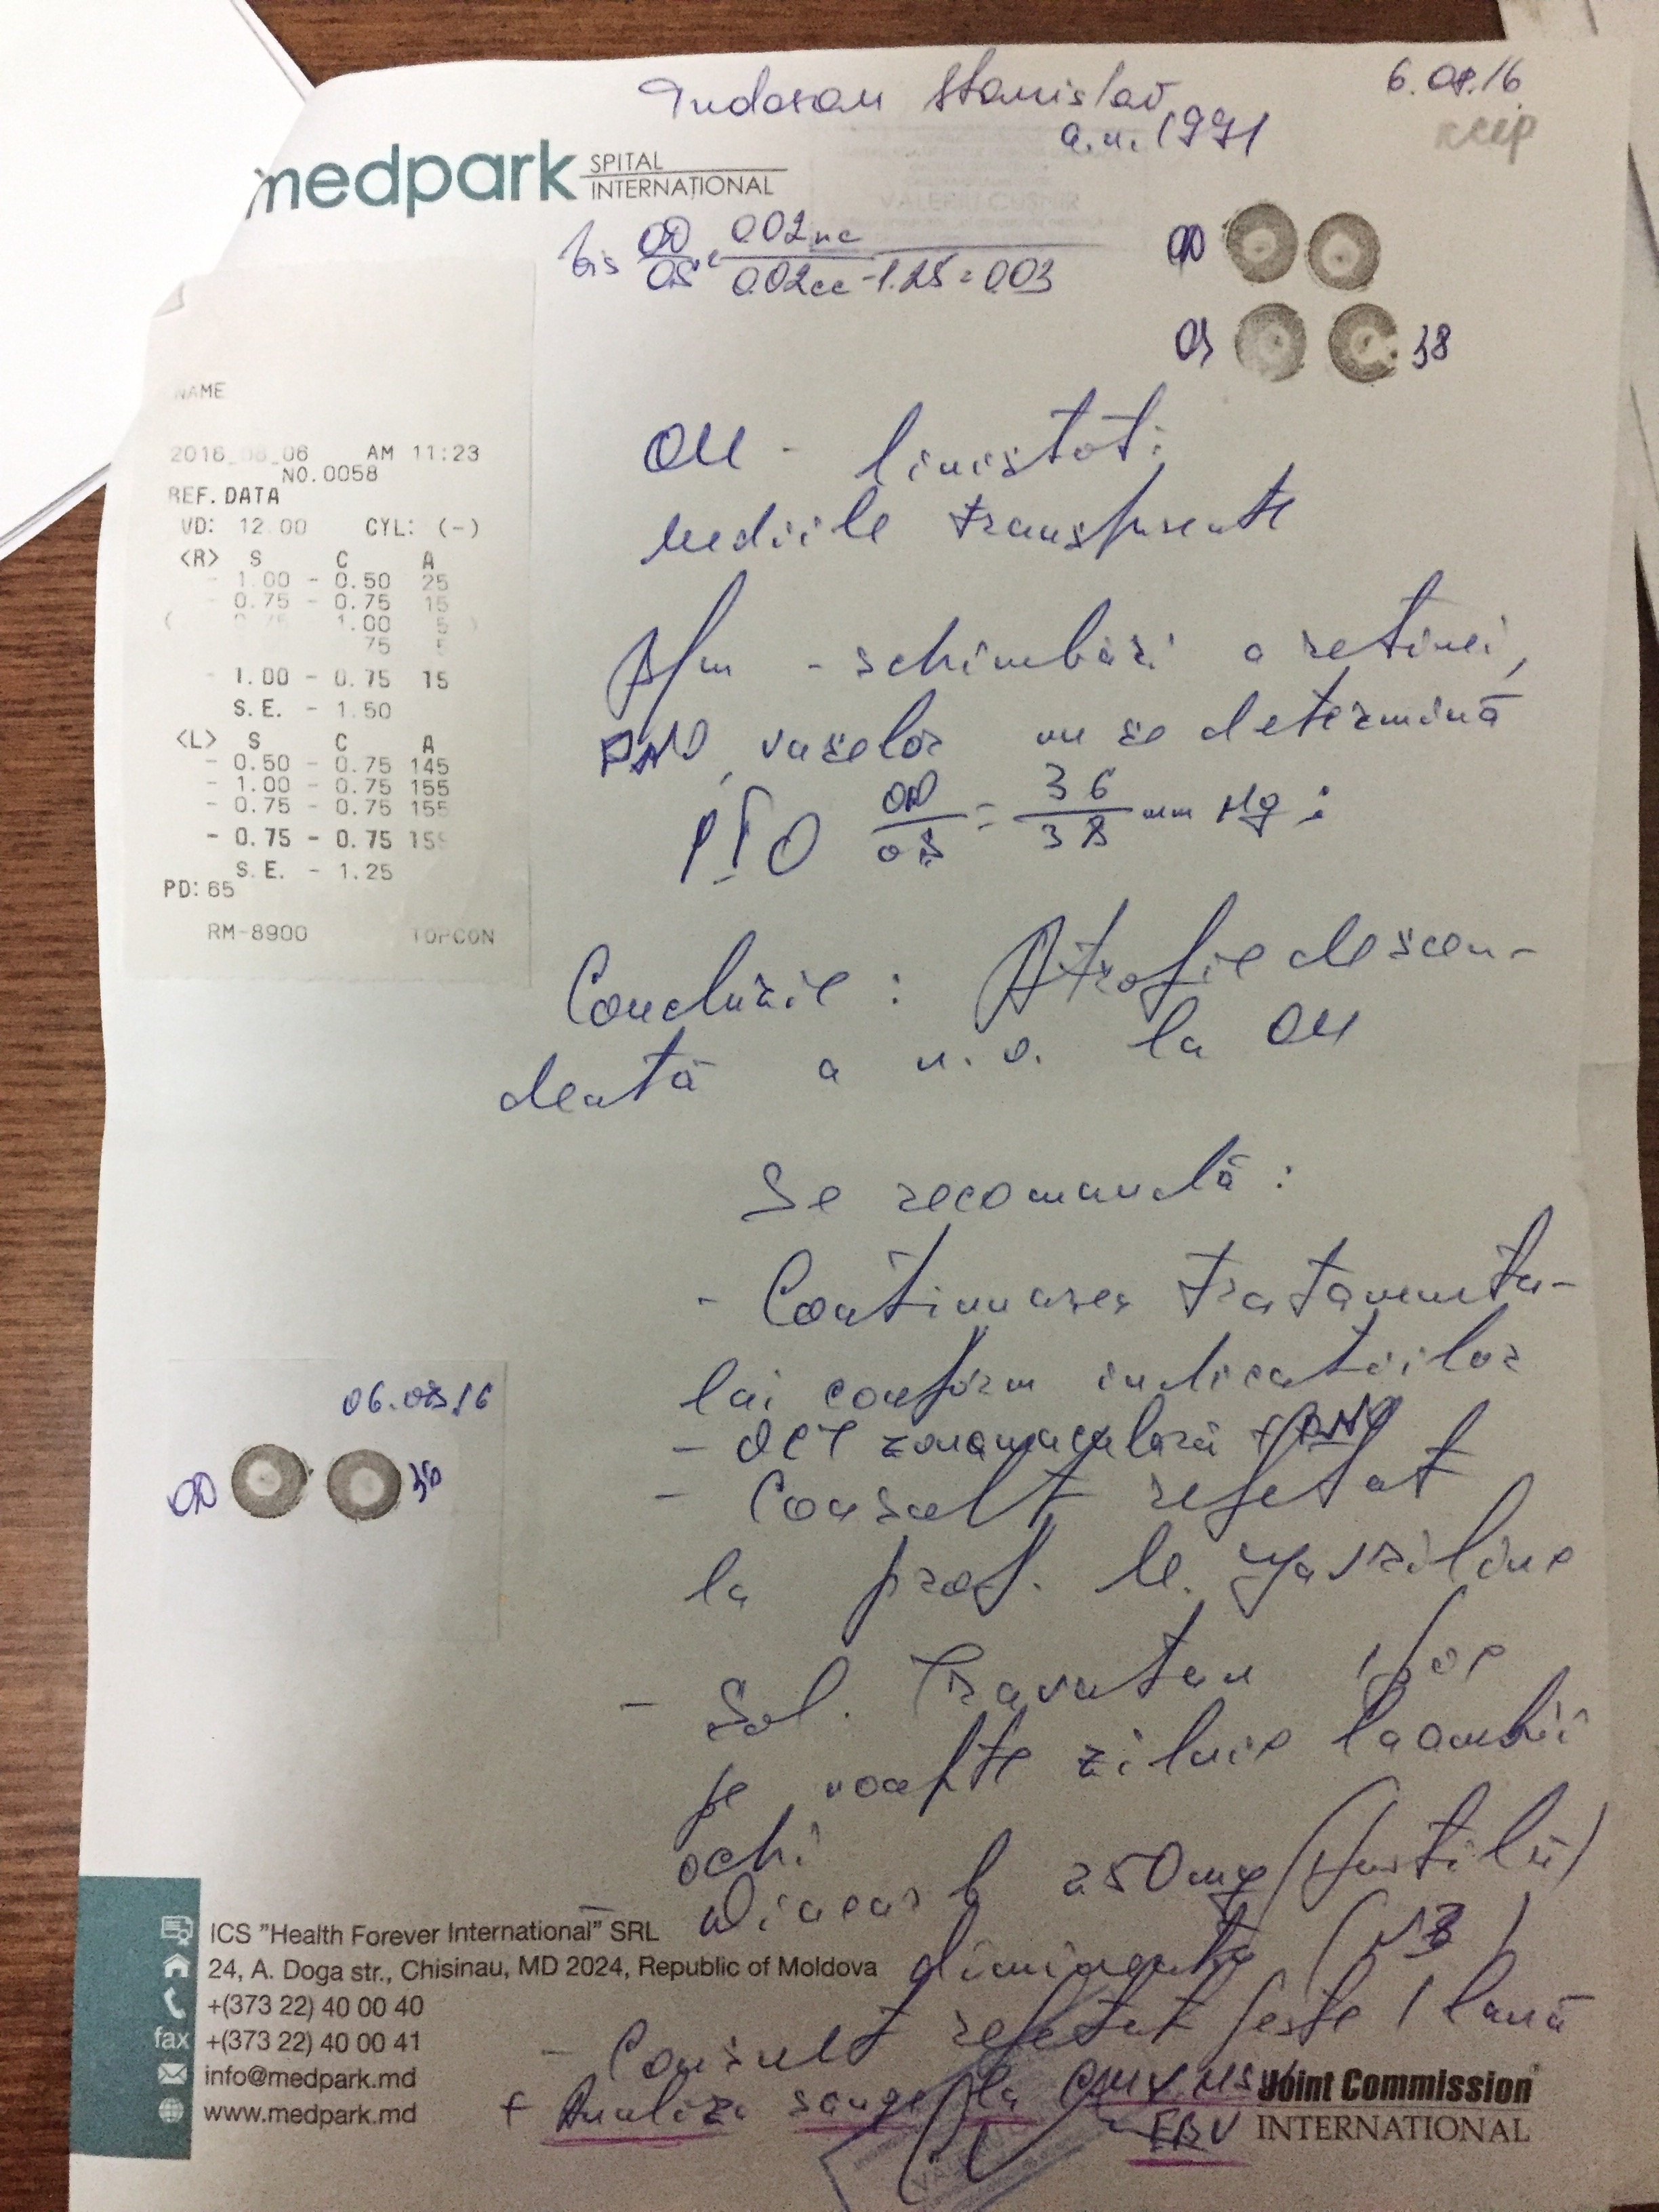 Tudosan Stanislav
6.08.16
a.n. 1991
medpark SPITAL
INTERNAȚIONAL
VALERIU CUSNIR
Vis OD 0.02 nc
OS 0.02 cc -1.25 = 0.03
OD
OS 38
NAME
2016_08_06 AM 11:23
NO.0058
REF. DATA
VD: 12.00 CYL: (-)
<R> S C A
- 1.00 - 0.50 25
- 0.75 - 0.75 15
1.00 5
75 5
- 1.00 - 0.75 15
S.E. - 1.50
<L> S C A
- 0.50 - 0.75 145
- 1.00 - 0.75 155
- 0.75 - 0.75 155
- 0.75 - 0.75 155
S.E. - 1.25
PD: 65
RM-8900 TOPCON
OU - linistoti
Mediile transparente
- schimbări a retinei,
PNO, vaselor nu se determină
PIO OD/OS = 36/38 mm Hg
Concluzie : Atrofie descen-
dentă a n. o. la OU
Se recomandă :
- Continuarea tratamentu-
lui conform indicatiilor
- OCT zona maculară + PNO
- Consult repetat
la prof. M. Gavriliuc
- Sol. Travatan 1 pic
pe noapte zilnic la ambii
ochi
Diacarb 250 mg (1 pastilă)
dimineata (N3)
- Consult repetat peste 1 lună
+ Analiza sange la CMV, HSV
EBV
06.08.16
OD 36
ICS "Health Forever International" SRL
24, A. Doga str., Chisinau, MD 2024, Republic of Moldova
+(373 22) 40 00 40
fax +(373 22) 40 00 41
info@medpark.md
www.medpark.md
Joint Commission
INTERNATIONAL